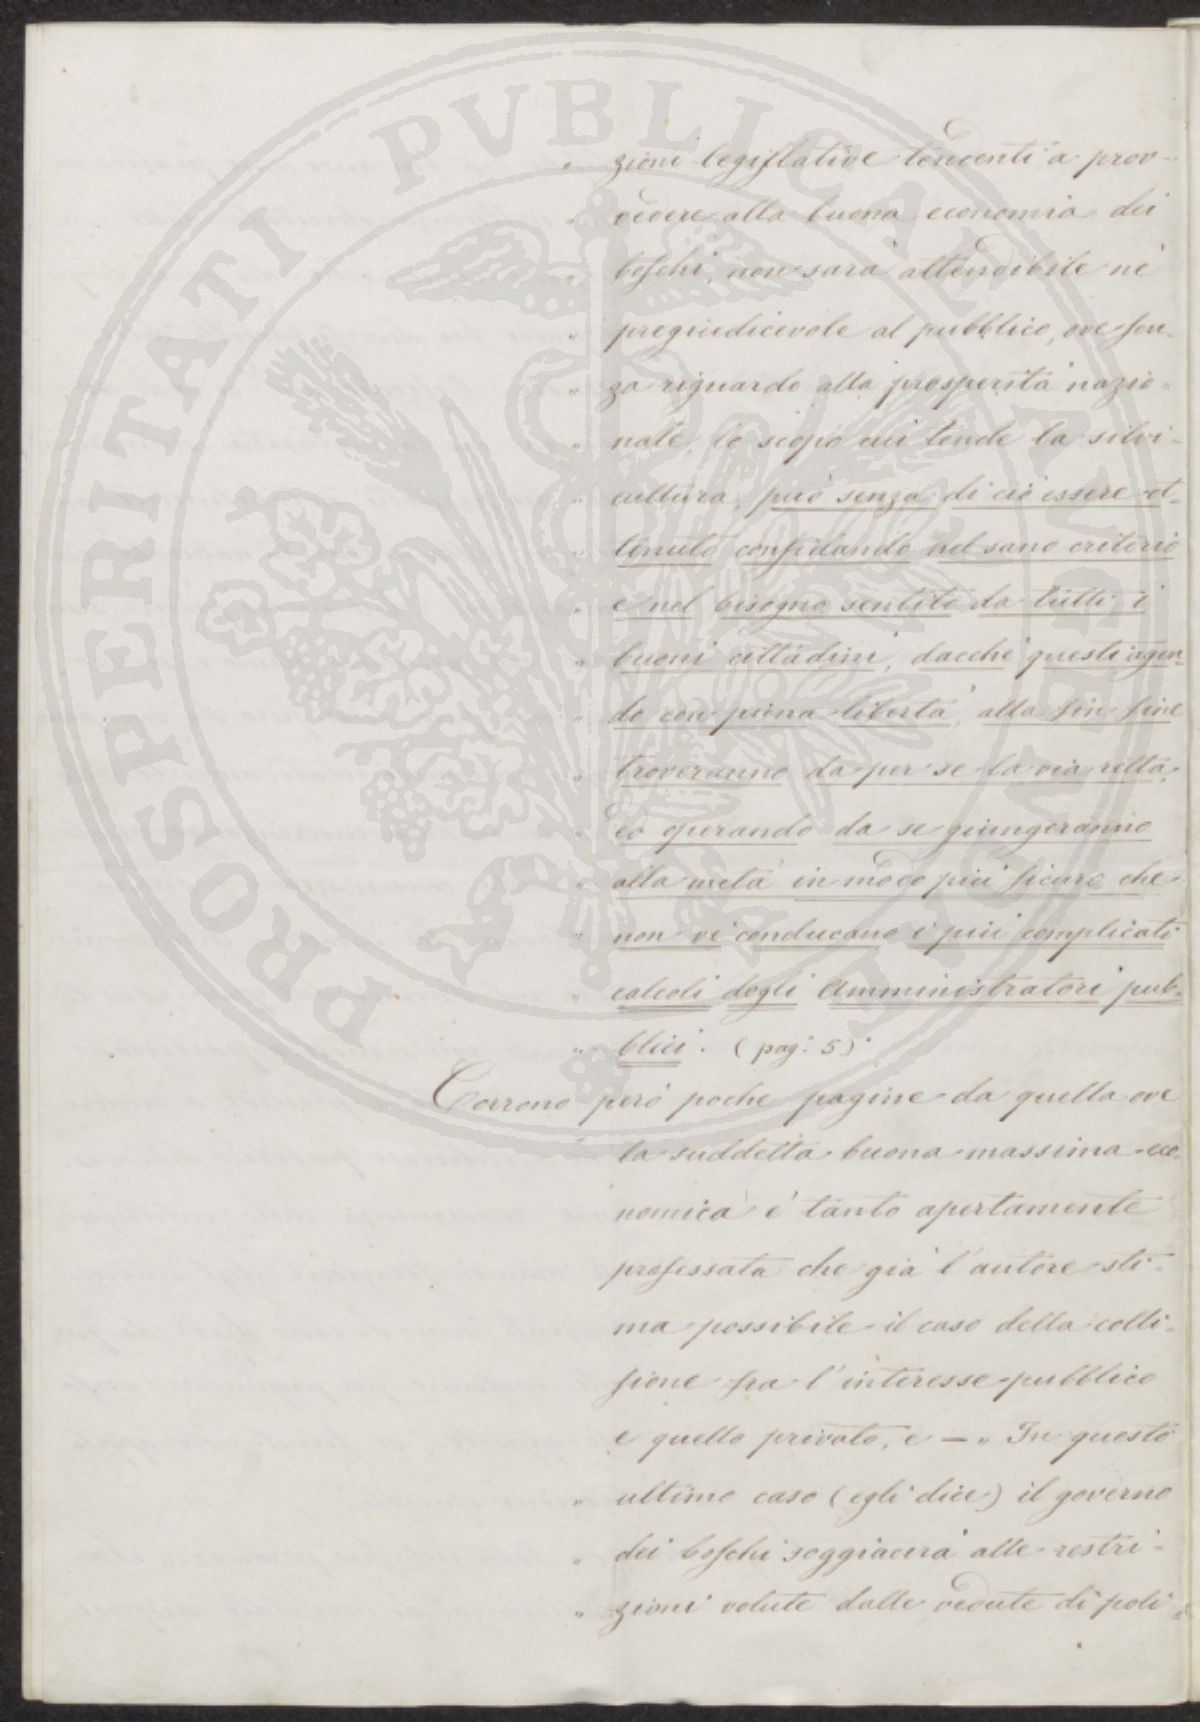 PROSPERITATI PUBLICAE AUGENDAE
„ zioni legislative tendenti a prov-
„ vedere alla buona economia dei
„ boschi, non sarà attendibile nè
„ pregiudicevole al pubblico, ove sen-
„ za riguardo alla prosperità nazio-
„ nale, lo scopo cui tende la silvi-
„ cultura, può senza di ciò essere ot-
„ tenuto confidando nel sano criterio
„ e nel bisogno sentito da tutti i
„ buoni cittadini, dacchè questi agen-
„ do con piena libertà, alla fin fine
„ troveranno da per se la via retta,
„ ed operando da se giungeranno
„ alla metà in modo più sicuro che
„ non vi conducano i più complicati
„ calcoli degli Amministratori pub-
„ blici. (pag: 5).
Corrono però poche pagine da quella ove
la suddetta buona massima eco-
nomica è tanto apertamente
professata che già l'autore sti-
ma possibile il caso della colli-
sione fra l'interesse pubblico
e quello privato, e — „ In questo
„ ultimo caso (egli dice) il governo
„ dei boschi soggiacerà alle restri-
„ zioni volute dalle vedute di poli-